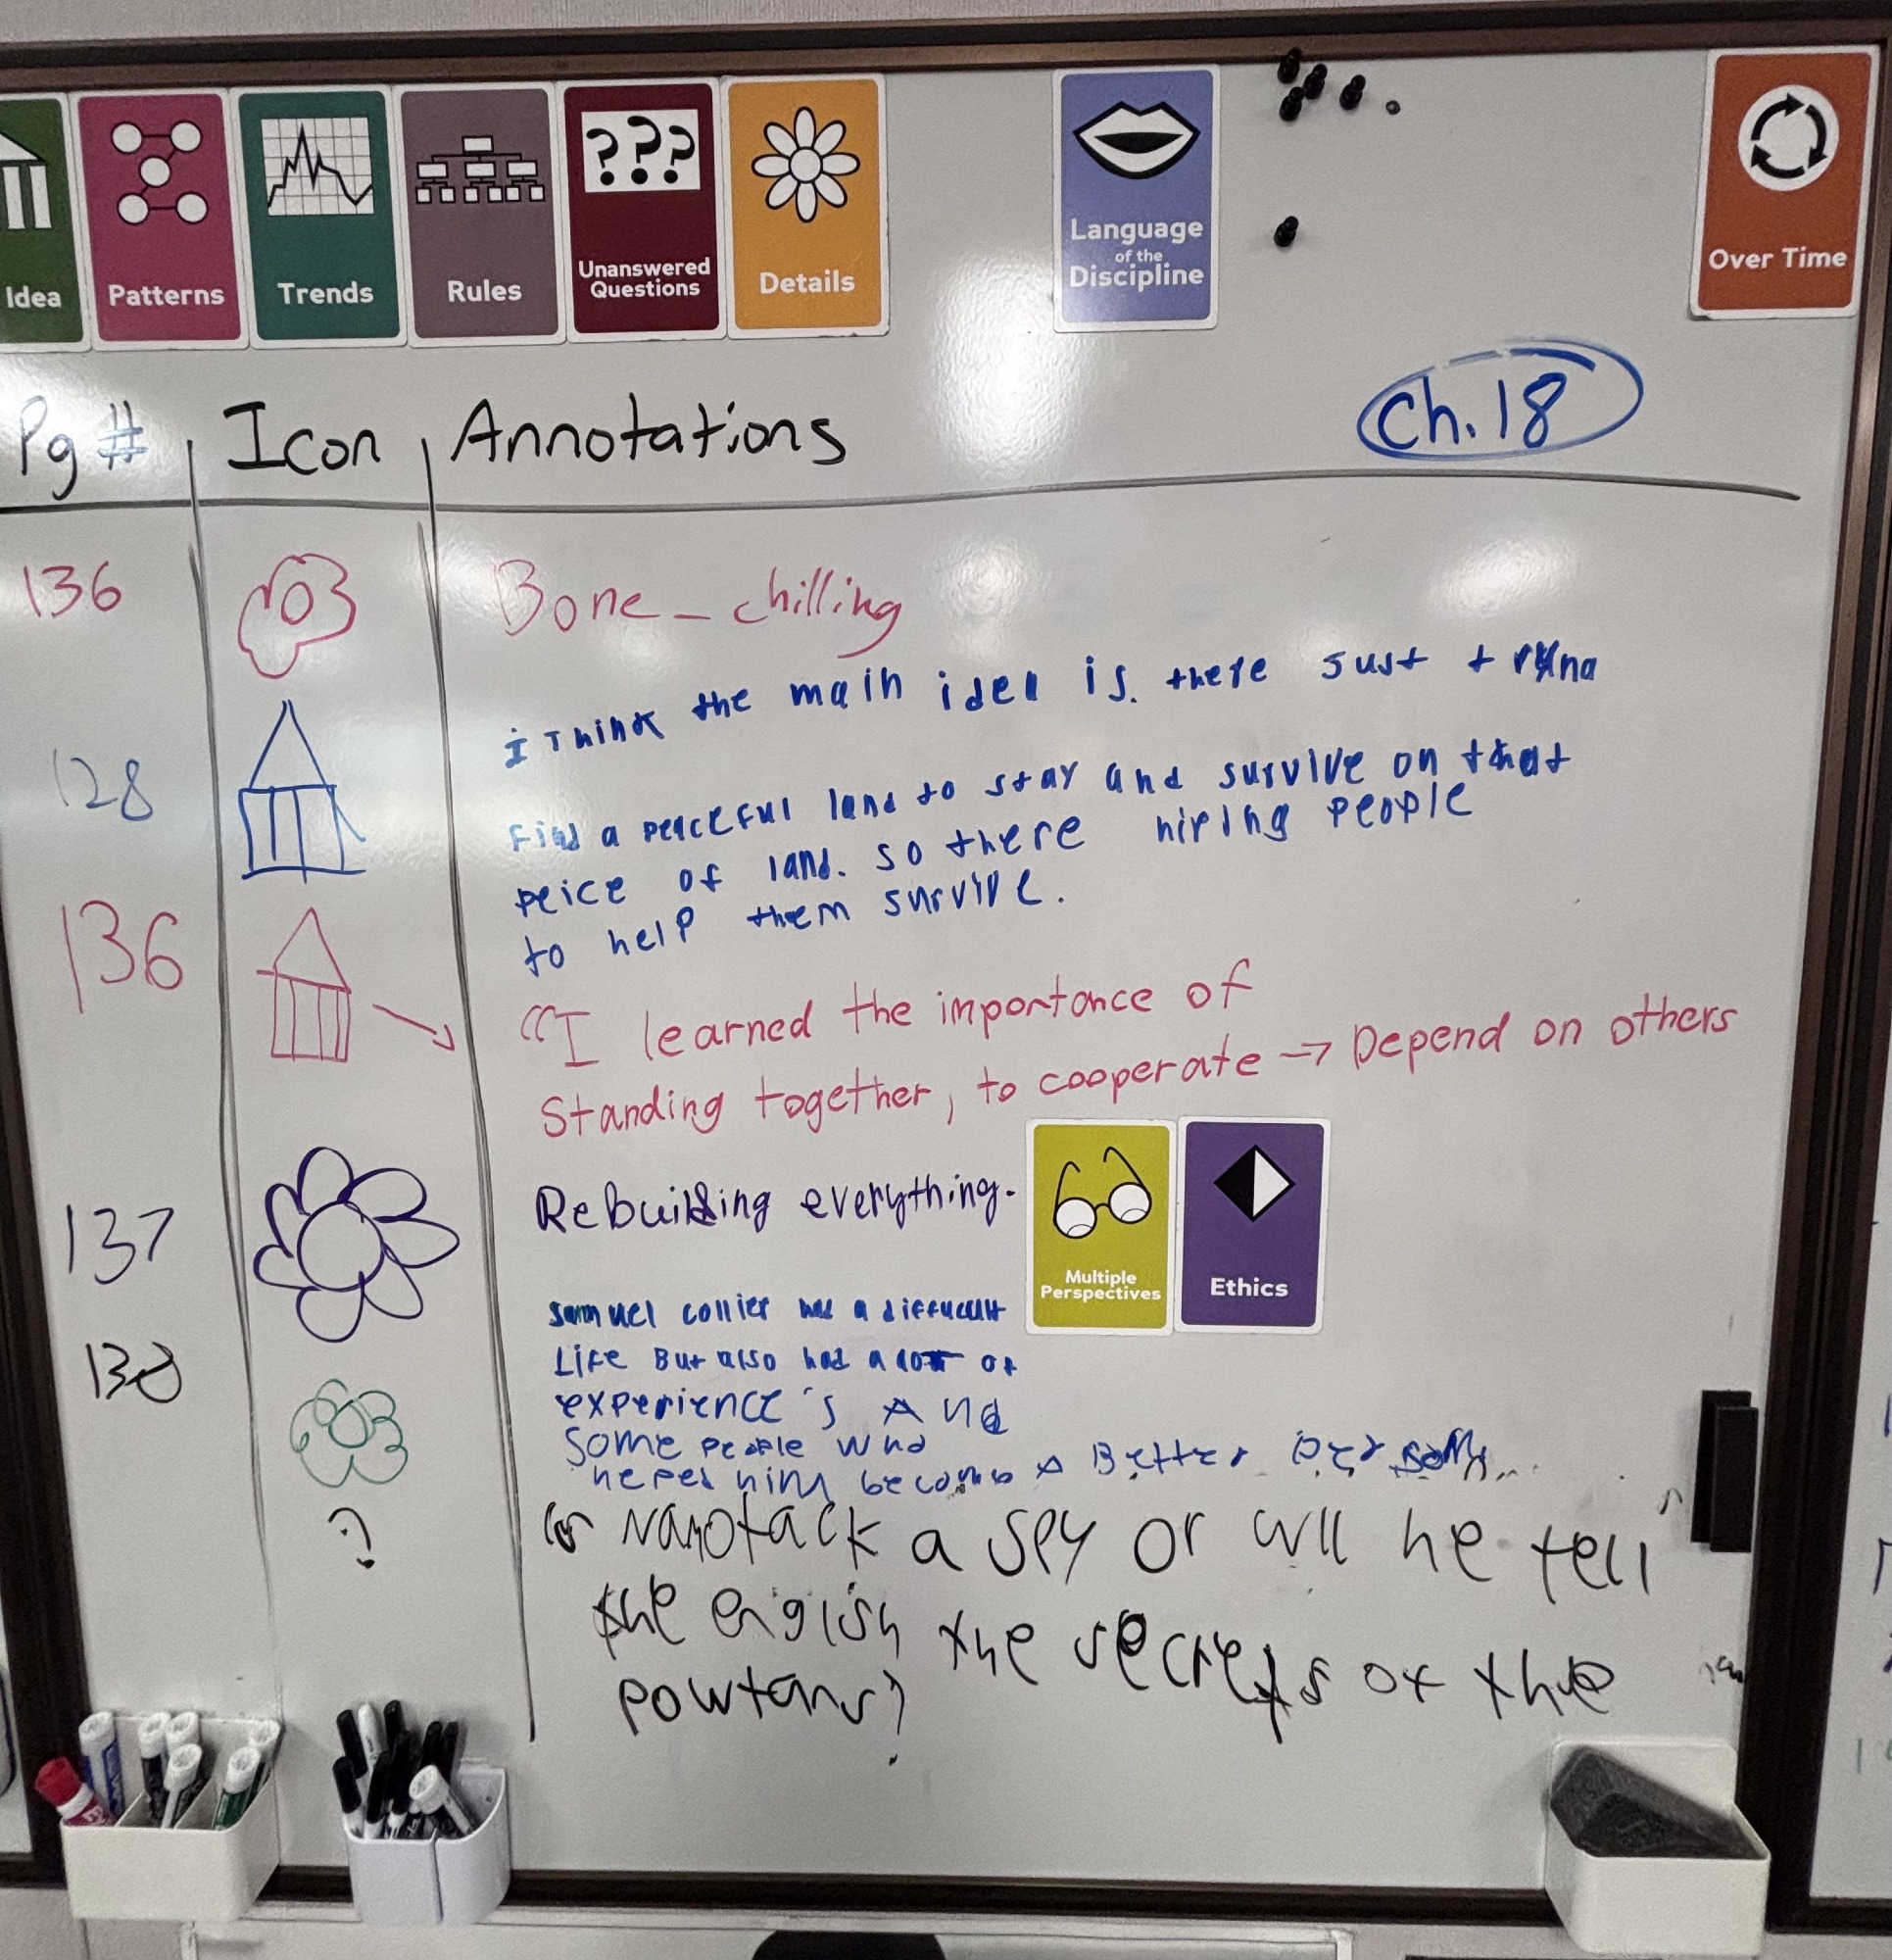 Idea
Patterns
Trends
Rules
???
Unanswered
Questions
Details
Language
of the
Discipline
Over Time
Pg # Icon Annotations
Ch. 18
136 Bone-chilling
I Think the main idea is. there Just
128
Find a peaceful land to stay and survive on that
peice of land. so there hiring people
to help them survive.
136
"I learned the importance of
Standing together, to cooperate → Depend on others
137 Rebuilding everything.
Multiple
Perspectives
Ethics
Samuel collier had a
Life But also had a lot of
138
experience's And
some people who
him a Better
? Namotack a spy or will he tell
the english the secrets of the
powtans?